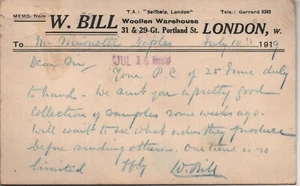 T.A: "Selfield, London"
Tele: Gerrard 8363
MEMO. FROM
W. BILL
Woollen Warehouse
31 & 29-Gt. Portland St.
LONDON, W.
To Mr Simonetti Naples July 10th 1919
JUL 16 RECD
Dear Sir,
Your P.C. of 25 June duly
to hand. We sent you a pretty good
collection of samples some weeks ago.
Will wait to see what orders they produce
before sending others. Our time is so
limited
W. Bill